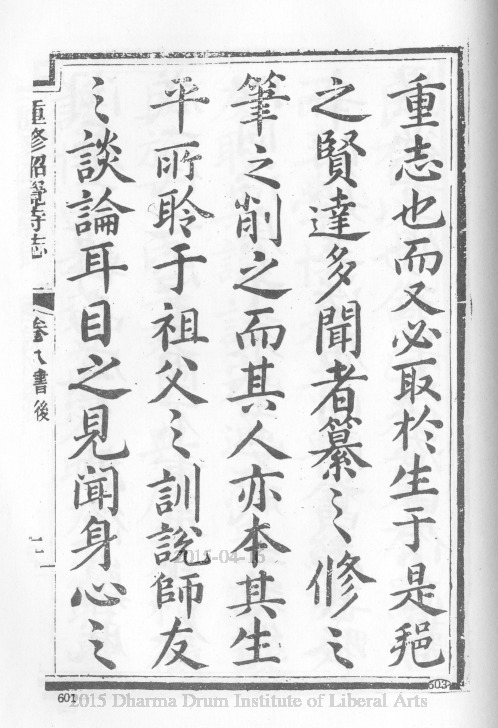 重志也而又必取於生于是邑
之賢達多聞者纂之修之
筆之削之而其人亦本其生
平所聆于祖父之訓說師友
之談論耳目之見聞身心之
重修昭覺寺志
卷八書後
一
601
603
2015-04-15
2015 Dharma Drum Institute of Liberal Arts